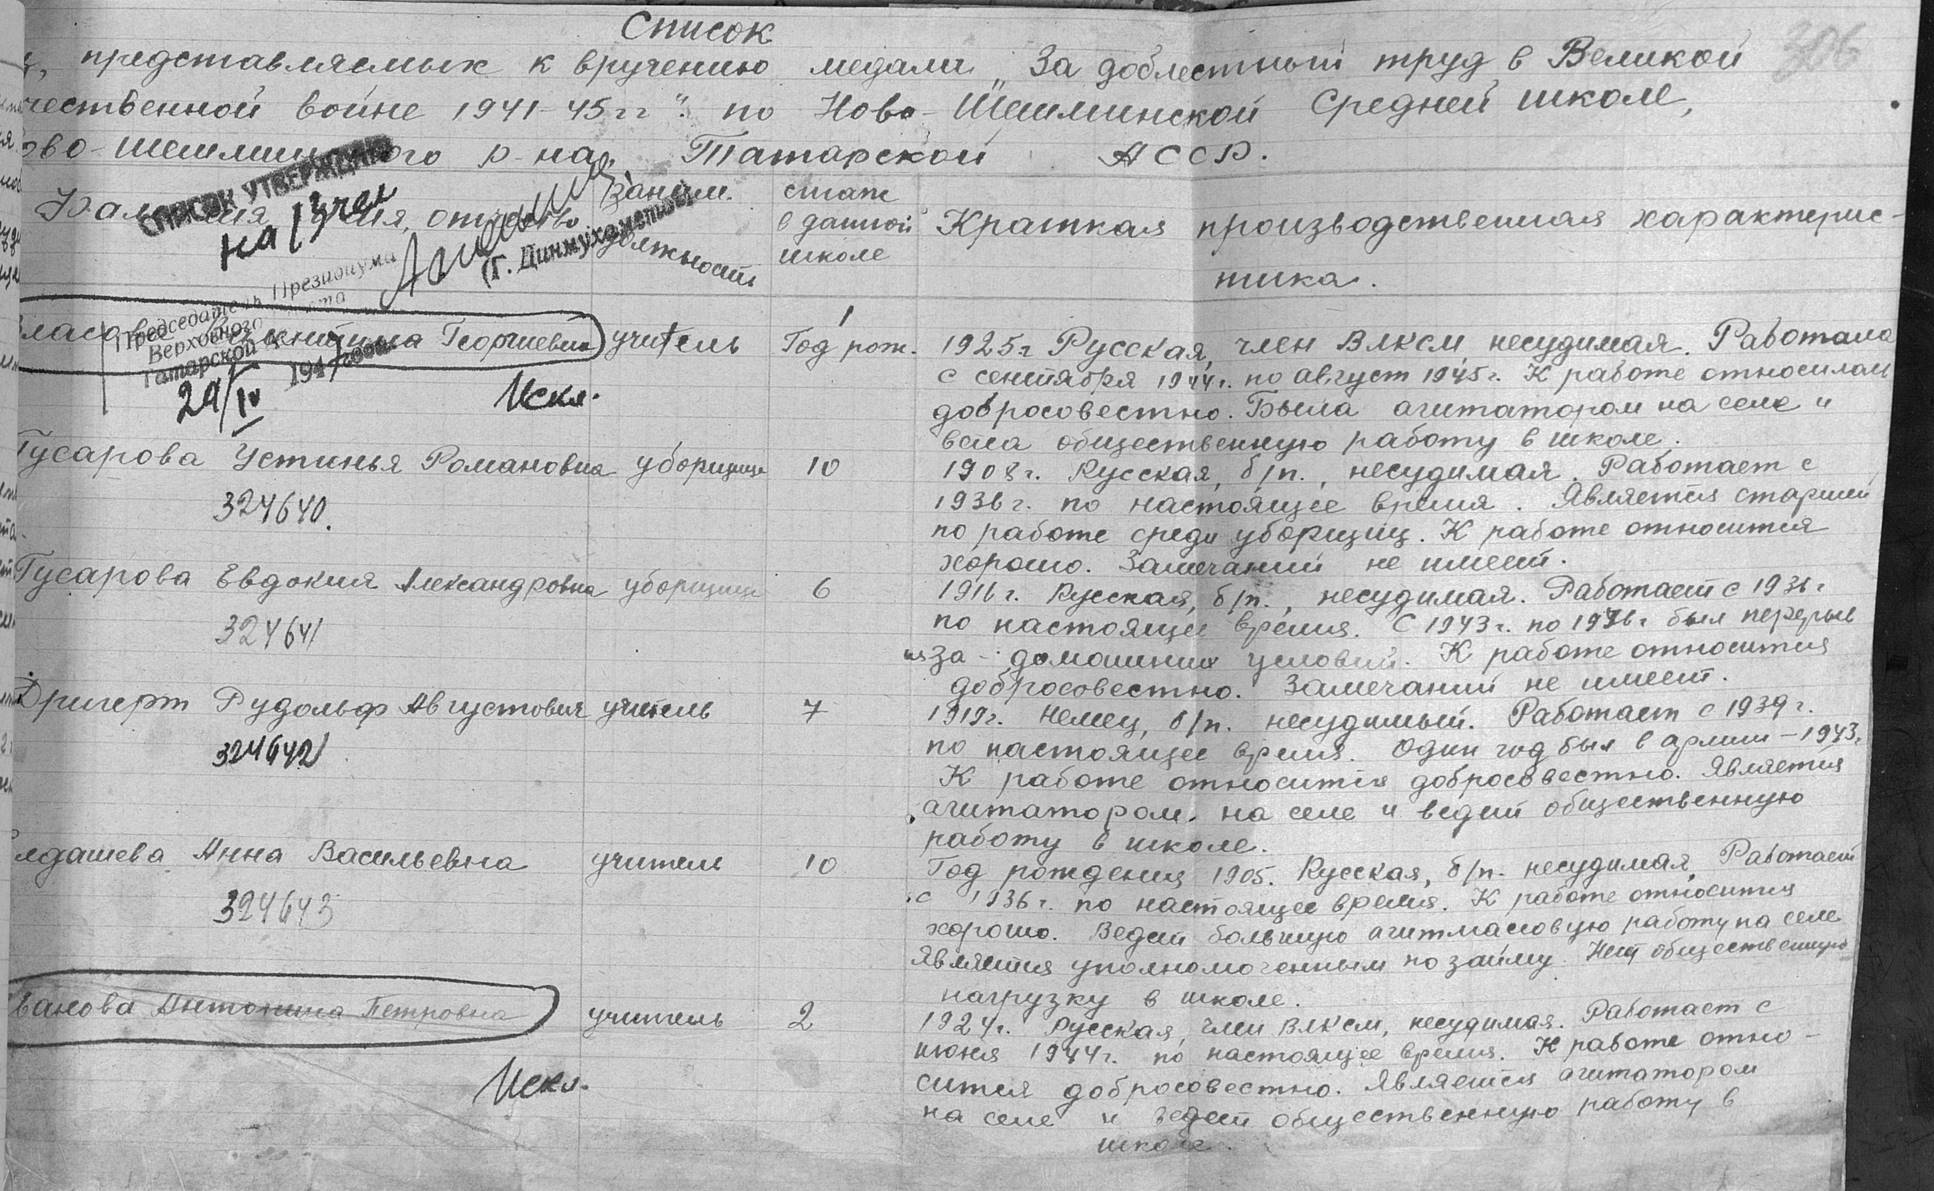 Список
представляемых к вручению медали „За доблестный труд в Великой
306
чественной войне 1941-45гг". по Ново-Шешминской Средней школе,
ово-Шешминского р-на, Татарской АССР.
СПИСОК УТВЕРЖДАЮ
на 13 чел
(Г. Динмухаметов)
Председатель Президиума
Верховного
Татарской
29/IV 194 года.
Фамилия, имя, отчество
Заним. должность
стаж в данной школе
Краткая производственная характерис-
тика.
Власова Георгиевна учитель 1 Год рож. 1925г Русская, член ВЛКСМ несудимая. Работала
с сентября 1944г. по август 1945г. К работе относилась
Искл.
добросовестно. Была агитатором на селе и
вела общественную работу в школе.
Гусарова Устинья Романовна уборщица 10 1908г. Русская, б/п., несудимая. Работает с
324640.
1936г. по настоящее время. Является старшей
по работе среди уборщиц. К работе относится
хорошо. Замечаний не имеет.
Гусарова Евдокия Александровна уборщица 6 1916г. Русская, б/п., несудимая. Работает с 1936г
324641
по настоящее время. С 1943г. по 1946г был перерыв
из за-домашних условий. К работе относится
добросовестно. Замечаний не имеет.
Дригерт Рудольф Августович учитель 7 1919г. Немец, б/п. несудимый. Работает с 1939г.
324642
по настоящее время. Один год был в армии-1943.
К работе относится добросовестно. Является
агитатором на селе и ведет общественную
работу в школе.
лдашева Анна Васильевна учитель 10 Год рождения 1905. Русская, б/п. несудимая. Работает
324643
с 1936г. по настоящее время. К работе относится
хорошо. Ведет большую агитмассовую работу на селе
Является уполномоченным по займу. Несет общественную
нагрузку в школе.
ванова Антонина Петровна учитель 2 1924г. Русская, член ВЛКСМ, несудимая. Работает с
июня 1944г. по настоящее время. К работе отно-
Искл.
сится добросовестно. Является агитатором
на селе и ведет общественную работу в
школе.